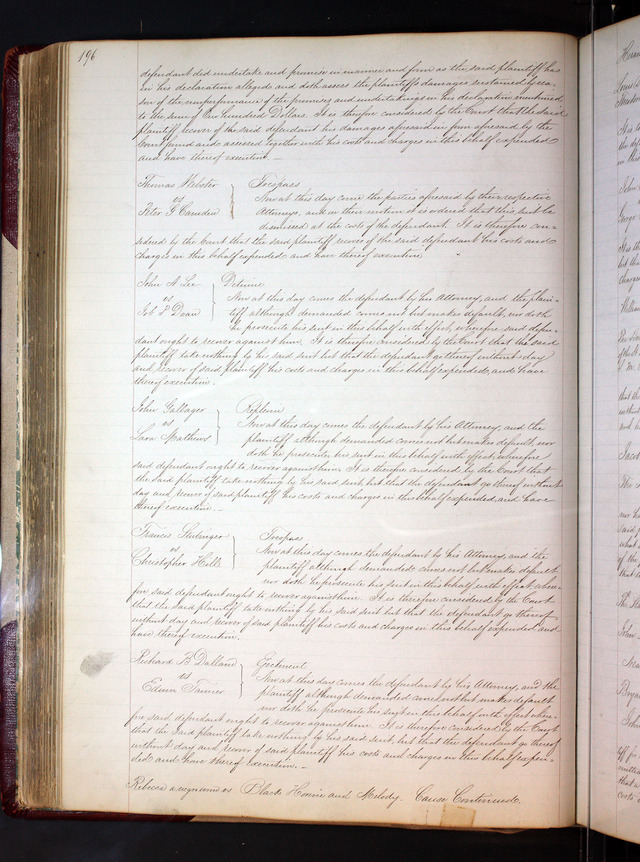 196
defendant did undertake and promise in manner and form as the said plaintiff has
in his declaration alleged and doth assess the plaintiffs damages sustained by rea-
son of the nonperformance of the promises and undertakings in his declaration mentioned
to the sum of One hundred Dollars. It is therefore considered by the Court that the said
plaintiff recover of the said defendant his damages aforesaid in form aforesaid by the
Court found and assessed together with his costs and charges in this behalf expended
and have thereof execution. —
Thomas Webster } Trespass
vs Now at this day come the parties aforesaid by their respective
Peter G Camden Attorneys, and on their motion it is ordered that this suit be
dismissed at the costs of the defendant. It is therefore con-
sidered by the Court that the said plaintiff recover of the said defendant his costs and
charges in this behalf expended and have thereof execution.
John A Lee } Detinue
vs Now at this day comes the defendant by his Attorney, and the plain-
Doan tiff although demanded comes not but makes default, nor doth
he prosecute his suit in this behalf with effect, wherefore said defen-
dant ought to recover against him. It is therefore considered by the Court that the said
plaintiff take nothing by his said suit but that the defendant go thereof without day
and recover of said plaintiff his costs and charges in this behalf expended, and have
thereof execution.
John Gallager } Replevin
vs Now at this day comes the defendant by his Attorney, and the
Mathews plaintiff although demanded comes not but makes default, nor
doth he prosecute his suit in this behalf with effect, wherefore
said defendant ought to recover against him. It is therefore considered by the Court that
the said plaintiff take nothing by his said suit but that the defendant go thereof without
day and recover of said plaintiff his costs and charges in this behalf expended, and have
thereof execution. —
Francis } Trespass
vs Now at this day comes the defendant by his Attorney, and the
Christopher Hall plaintiff although demanded comes not but makes default
nor doth he prosecute his suit in this behalf with effect where-
fore said defendant ought to recover against him. It is therefore considered by the Court
that the said plaintiff take nothing by his said suit but that the defendant go thereof
without day and recover of said plaintiff his costs and charges in this behalf expended and
have thereof execution.
Richard B Dallam } Ejectment
vs Now at this day comes the defendant by his Attorney, and the
Edwin Tanner plaintiff although demanded comes not but makes default
nor doth he prosecute his suit in this behalf with effect where-
fore said defendant ought to recover against him. It is therefore considered by the Court
that the said plaintiff take nothing by his said suit, but that the defendant go thereof
without day and recover of said plaintiff his costs and charges in this behalf expen-
ded and have thereof execution. —
Rebecca vs Black and Melody. Cause Continued.